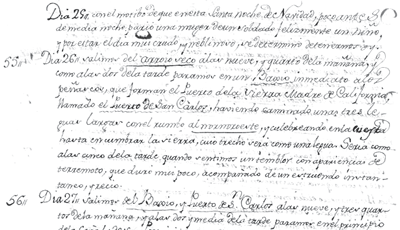 Dia 25,, con el motivo de que en esta Santa noche de Navidad, poco antes
de media noche parió una muger de un soldado felizmente un Niño,
y por estar el dia mui crudo, y neblinoso, se determinó detenernos oy.
55,, Dia 26,, salimos del arroio seco alas nueve, y quarto dela mañana, y
como alas dos dela tarde paramos en un Baxio immediato alos
peñascos, que forman el Puerto dela Sierra Madre de California,
llamado el Puerto de San Carlos, haviendo caminado unas tres le-
guas largas con el rumbo al nornoroeste, y culebreando en la cuesta
hasta encumbrar la sierra, cuio trecho sera como una legua. Seria como
alas cinco dela tarde, quando sentimos un temblor con apariencias de
terremoto, que duró mui poco, acompañado de un estruendo instan-
taneo, y recio.
56,, Dia 27,, salimos del Baxio, y Puerto de Sn. Carlos alas nueve, y tres quar-
tos dela mañana, y alas dos y media dela tarde paramos en el principio